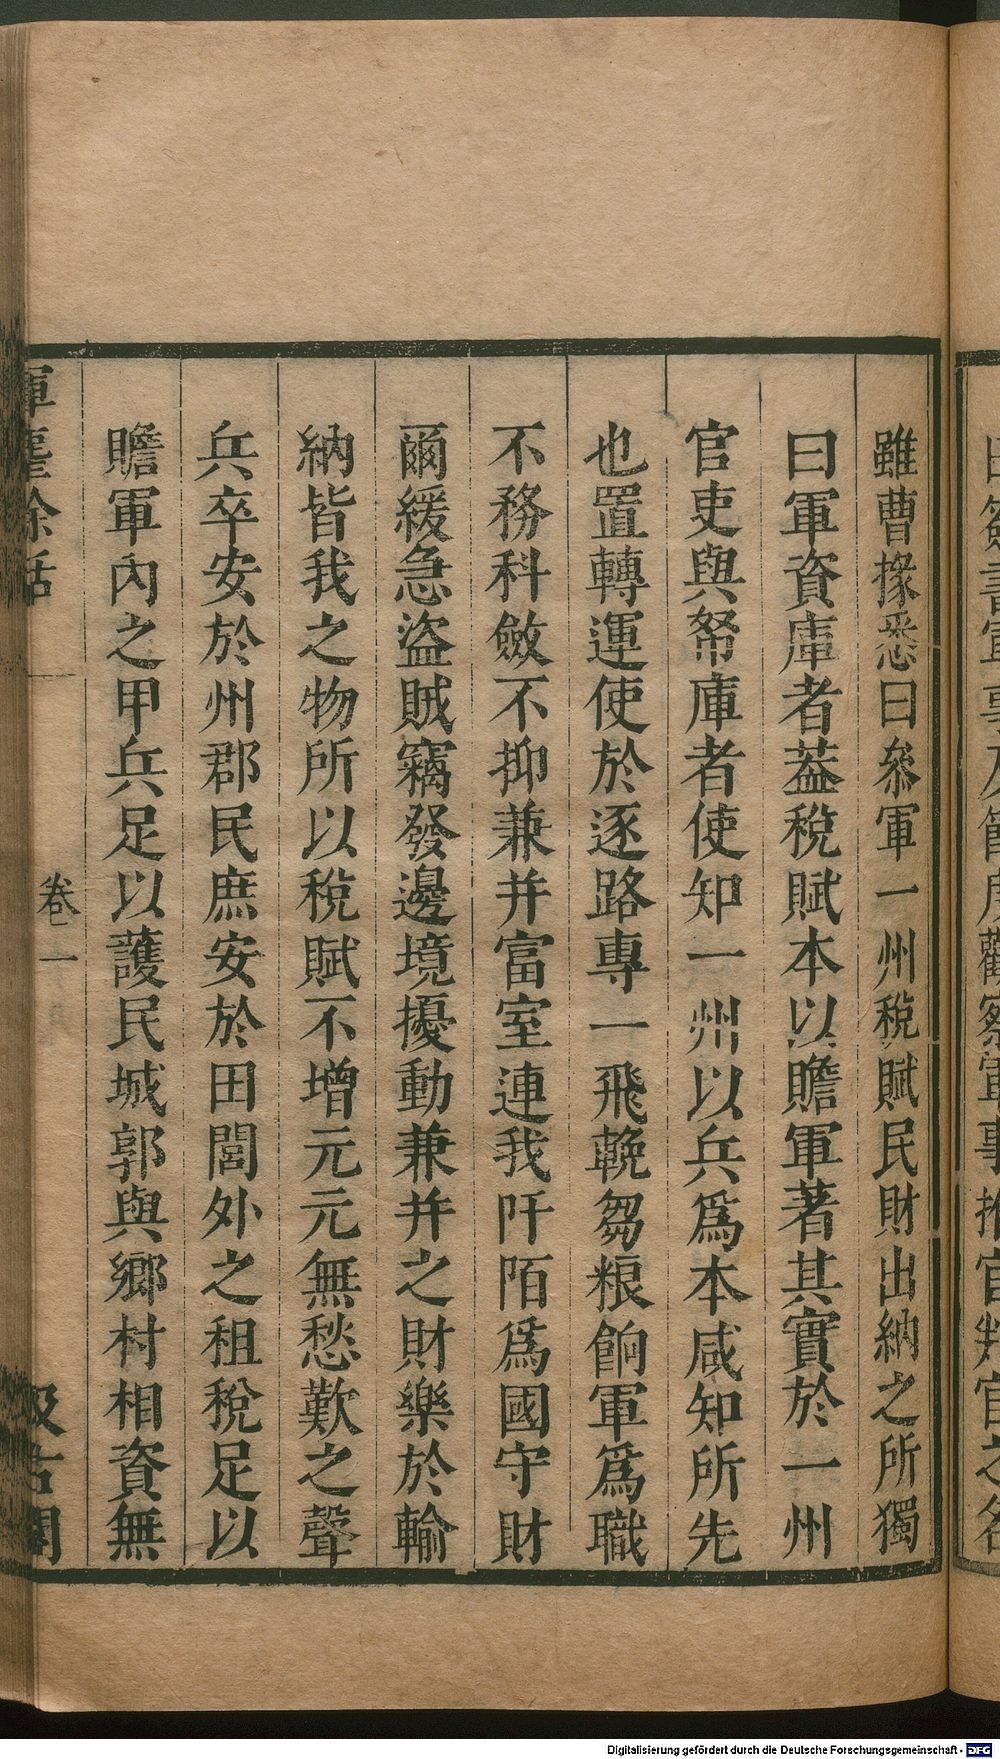 雖曹掾悉曰叅軍一州稅賦民財出納之所獨
曰軍資庫者葢稅賦本以贍軍著其實於一州
官吏與帑庫者使知一州以兵爲本咸知所先
也置轉運使於逐路專一飛輓芻粮餉軍爲職
不務科斂不抑兼并富室連我阡陌爲國守財
爾緩急盜賊竊發邊境擾動兼并之財樂於輸
納皆我之物所以稅賦不增元元無愁歎之聲
兵卒安於州郡民庶安於田閭外之租稅足以
贍軍內之甲兵足以護民城郭與鄉村相資無
揮麈餘話
卷一
汲古閣
Digitalisierung gefördert durch die Deutsche Forschungsgemeinschaft - DFG